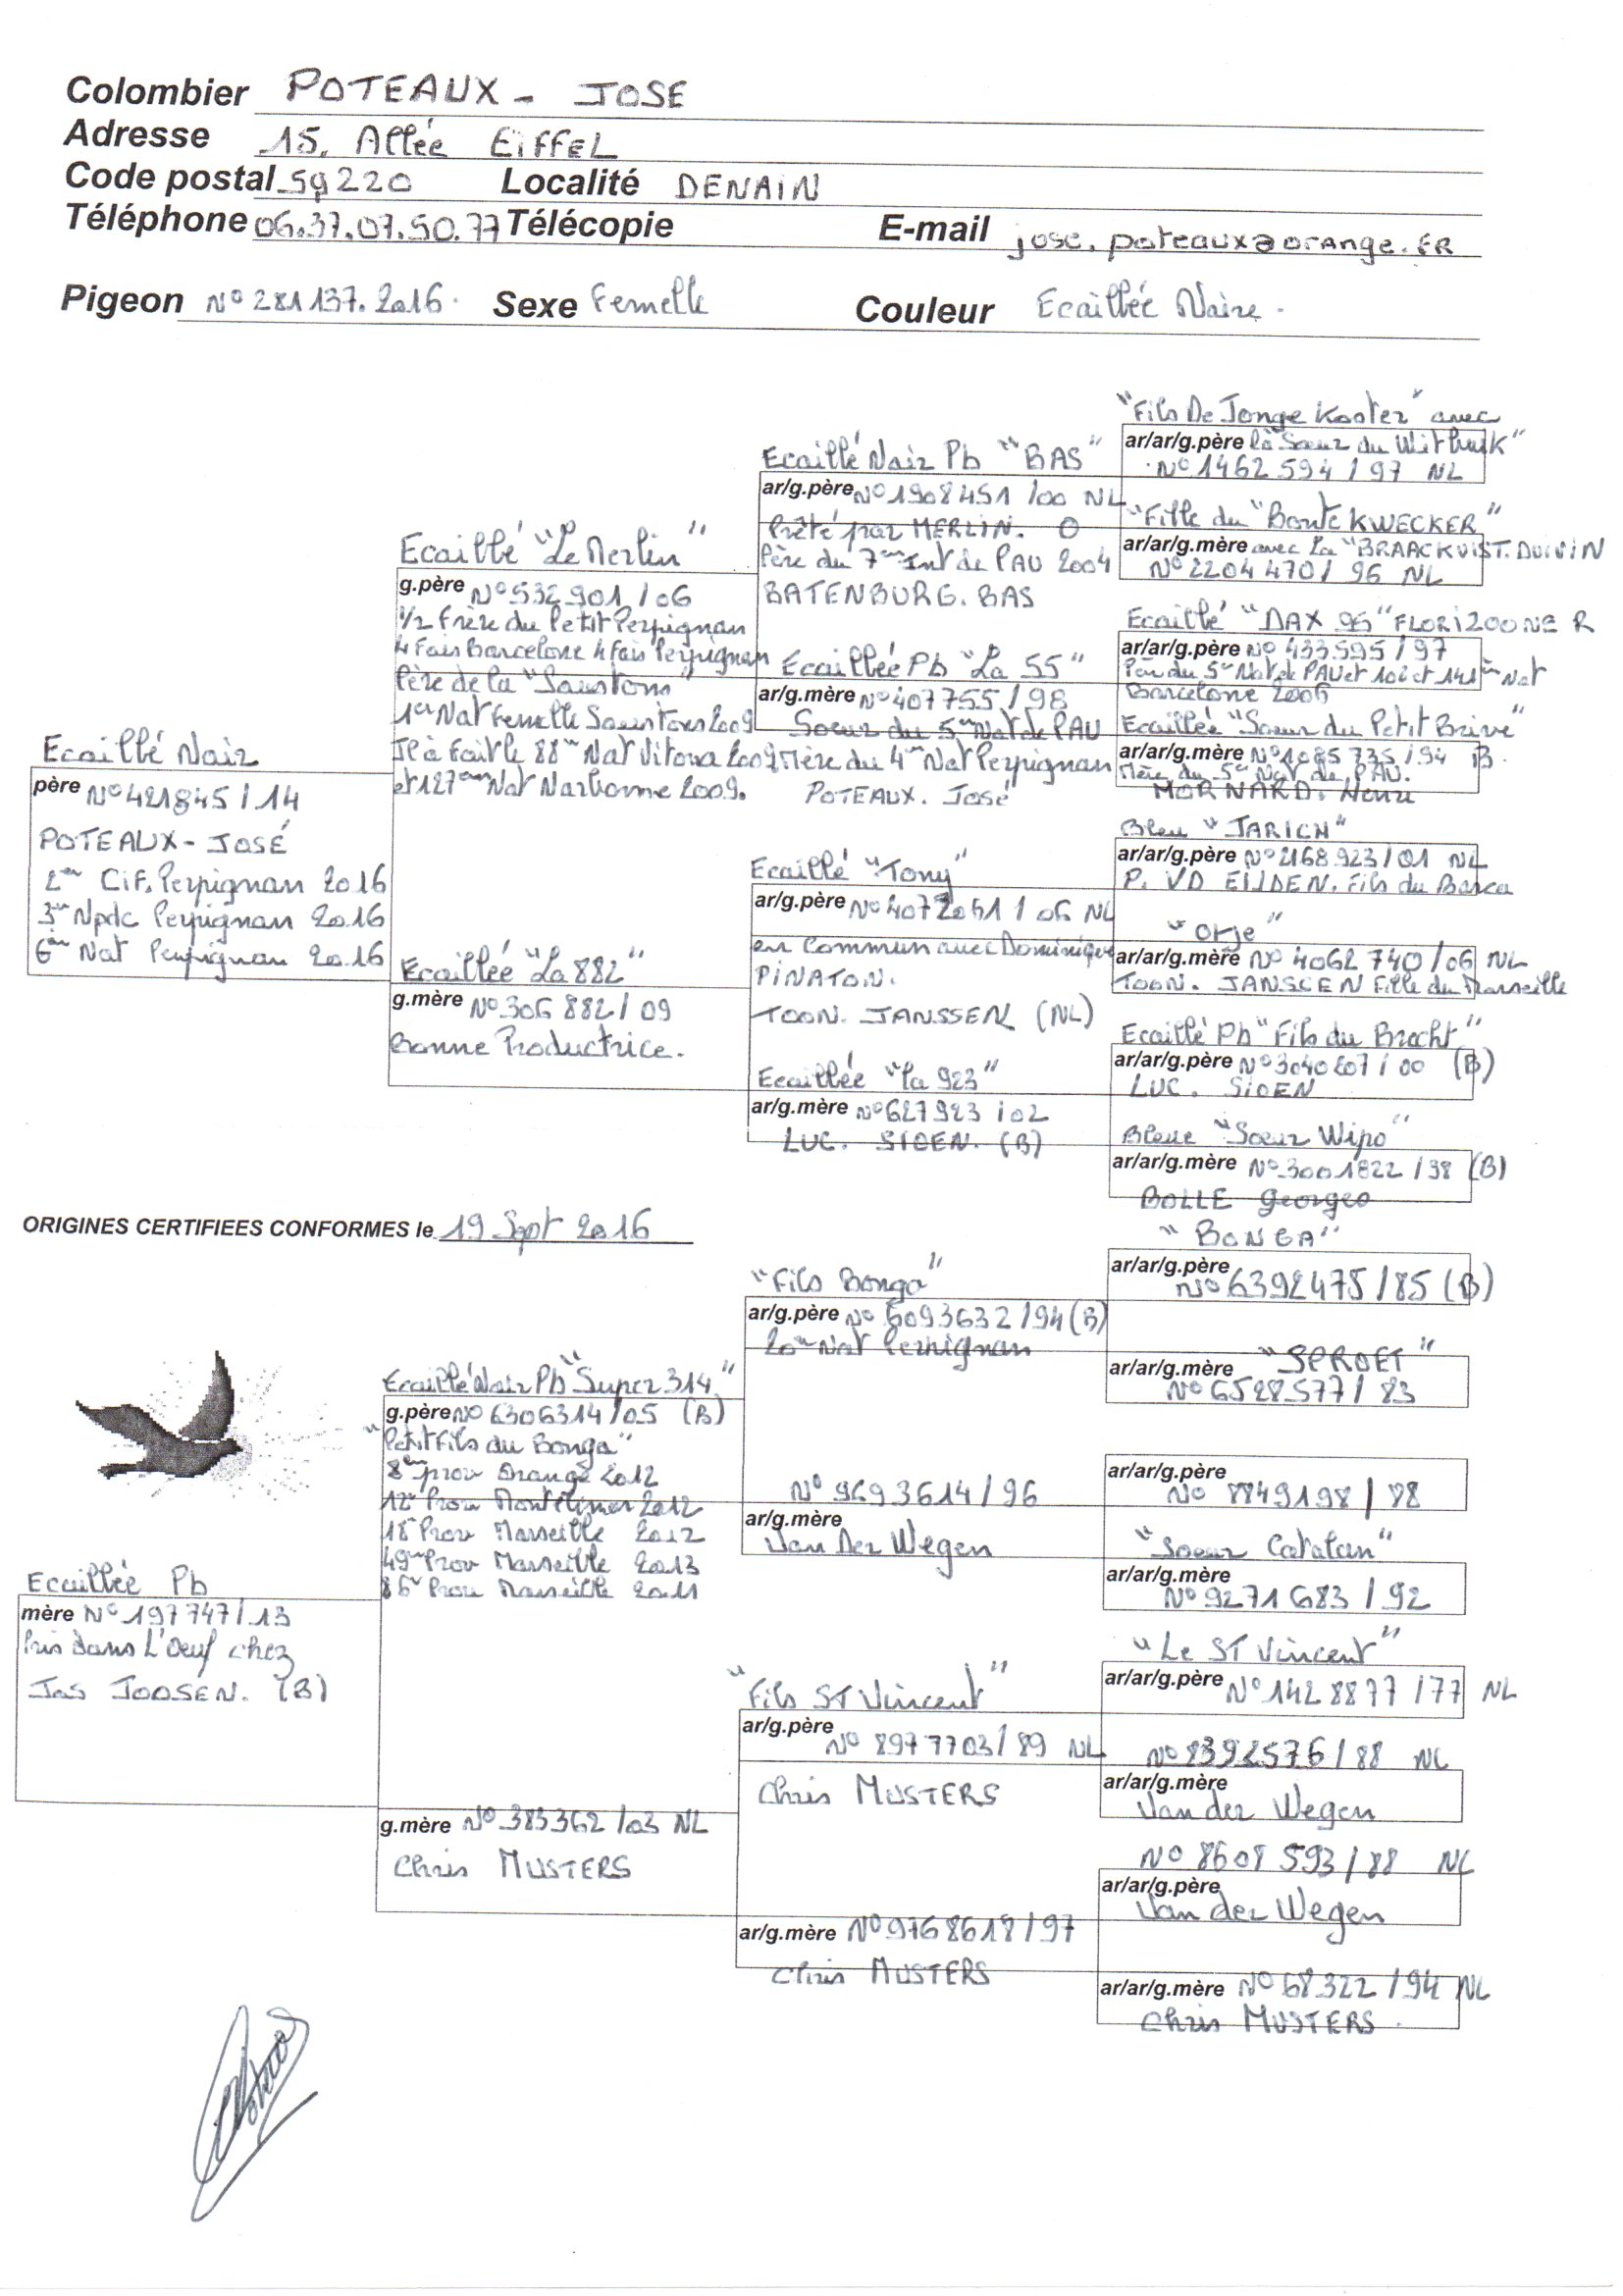 Colombier POTEAUX - JOSE
Adresse 15, Allée EIFFEL
Code postal 59220 Localité DENAIN
Téléphone 06.37.07.50.77 Télécopie E-mail jose.poteaux@orange.FR
Pigeon N° 281137.2016. Sexe Femelle Couleur Ecaillée Noire.
Ecaillé Noir
père N° 421845/14
POTEAUX - JOSÉ
2em Cif. Perpignan 2016
3em Npdc Perpignan 2016
6em Nat Perpignan 2016
Ecaillé "Le Merlin"
g.père N° 532901/06
1/2 Frère du Petit Perpignan
4 Fois Barcelone 4 fois Perpignan
Père de la "Soustons"
1er Nat Femelle Soustons 2009
Il à Fait le 88em Nat Vitoria 2009
et 127em Nat Narbonne 2009.
Ecaillée "La 882"
g.mère N° 306882/09
Bonne Productrice.
Ecaillé Noir Pb "BAS"
ar/g.père N° 1908451/00 NL
Prêté par MERLIN. O
Père du 7em Int de PAU 2004
BATENBURG. BAS
Ecaillée Pb "La 55"
ar/g.mère N° 407755/98
Soeur du 5em Nat de PAU
Mère du 4em Nat Perpignan
POTEAUX. José
Ecaillé "Tony"
ar/g.père N° 4072051/06 NL
en Commun avec Dominique
PINATON.
TOON. JANSSEN (NL)
Ecaillée "la 923"
ar/g.mère N° 627923/02
LUC. SIOEN. (B)
"Fils De Jonge Kooter" avec
ar/ar/g.père la Soeur du Withuik"
N° 1462594/97 NL
"Fille du "Bonte KWECKER"
ar/ar/g.mère avec la "BRAACKVIST. DUIVIN
N° 2204470/96 NL
Ecaillé "DAX 95" FLORIZOONE R
ar/ar/g.père N° 433595/97
Père du 5em Nat de PAU et 106 et 141em Nat
Barcelone 2006
Ecaillée "Soeur du Petit Brive"
ar/ar/g.mère N° 1085735/94 B.
Mère du 5em Nat de PAU.
MORNARD. Henri
Bleu "JARICH"
ar/ar/g.père N° 2168923/01 NL
P. VD EIJDEN. Fils du Barca
"Orje"
ar/ar/g.mère N° 4062740/06 NL
TOON. JANSCEN Fille du Marseille
Ecaillé Pb "Fils du Bracht"
ar/ar/g.père N° 3040207/00 (B)
LUC. SIOEN
Bleue "Soeur Wipo"
ar/ar/g.mère N° 3001822/98 (B)
BOLLE Georges
ORIGINES CERTIFIEES CONFORMES le 19 Sept 2016
Ecaillée Pb
mère N° 197747/13
Pris dans L'oeuf chez
Jos JOOSEN. (B)
Ecaillé Noir Pb "Super 314"
g.père N° 6306314/05 (B)
"Petit Fils du Bonga"
8em prov Orange 2012
12e Prov Montélimar 2012
18e Prov Marseille 2012
49em Prov Marseille 2013
86e Prov Marseille 2011
g.mère N° 383362/03 NL
Chris MUSTERS
"Fils Bonga"
ar/g.père N° 6093632/94 (B)
20em Nat Perpignan
N° 9693614/96
ar/g.mère
Van Der Wegen
"Fils ST Vincent"
ar/g.père
N° 8977703/89 NL
Chris MUSTERS
ar/g.mère N° 9768618/97
Chris MUSTERS
"BONGA"
ar/ar/g.père
N° 6392475/85 (B)
"SPROET"
ar/ar/g.mère
N° 6528577/83
ar/ar/g.père
N° 8849198/88
"Soeur Catalan"
ar/ar/g.mère
N° 9271683/92
"Le ST Vincent"
ar/ar/g.père N° 1428877/77 NL
N° 8392576/88 NL
ar/ar/g.mère
Van der Wegen
N° 8608593/88 NL
ar/ar/g.père
Van der Wegen
ar/ar/g.mère N° 68322/94 NL
Chris MUSTERS.